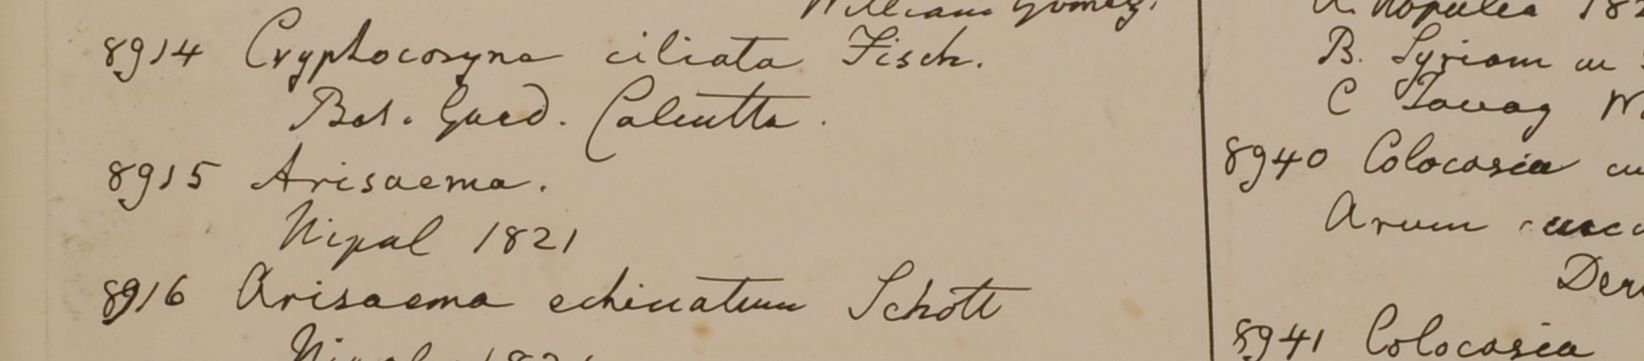 William Gomez.
8914 Cryptocoryna ciliata Fisch.
Bot. Gard. Calcutta.
8915 Arisaema.
Nipal 1821
8916 Arisaema echinatum Schott
Nipal 1821
A. Nopalea 182
B. Syriam
C Tavag W.
8940 Colocasia
Arum
8941 Colocasia